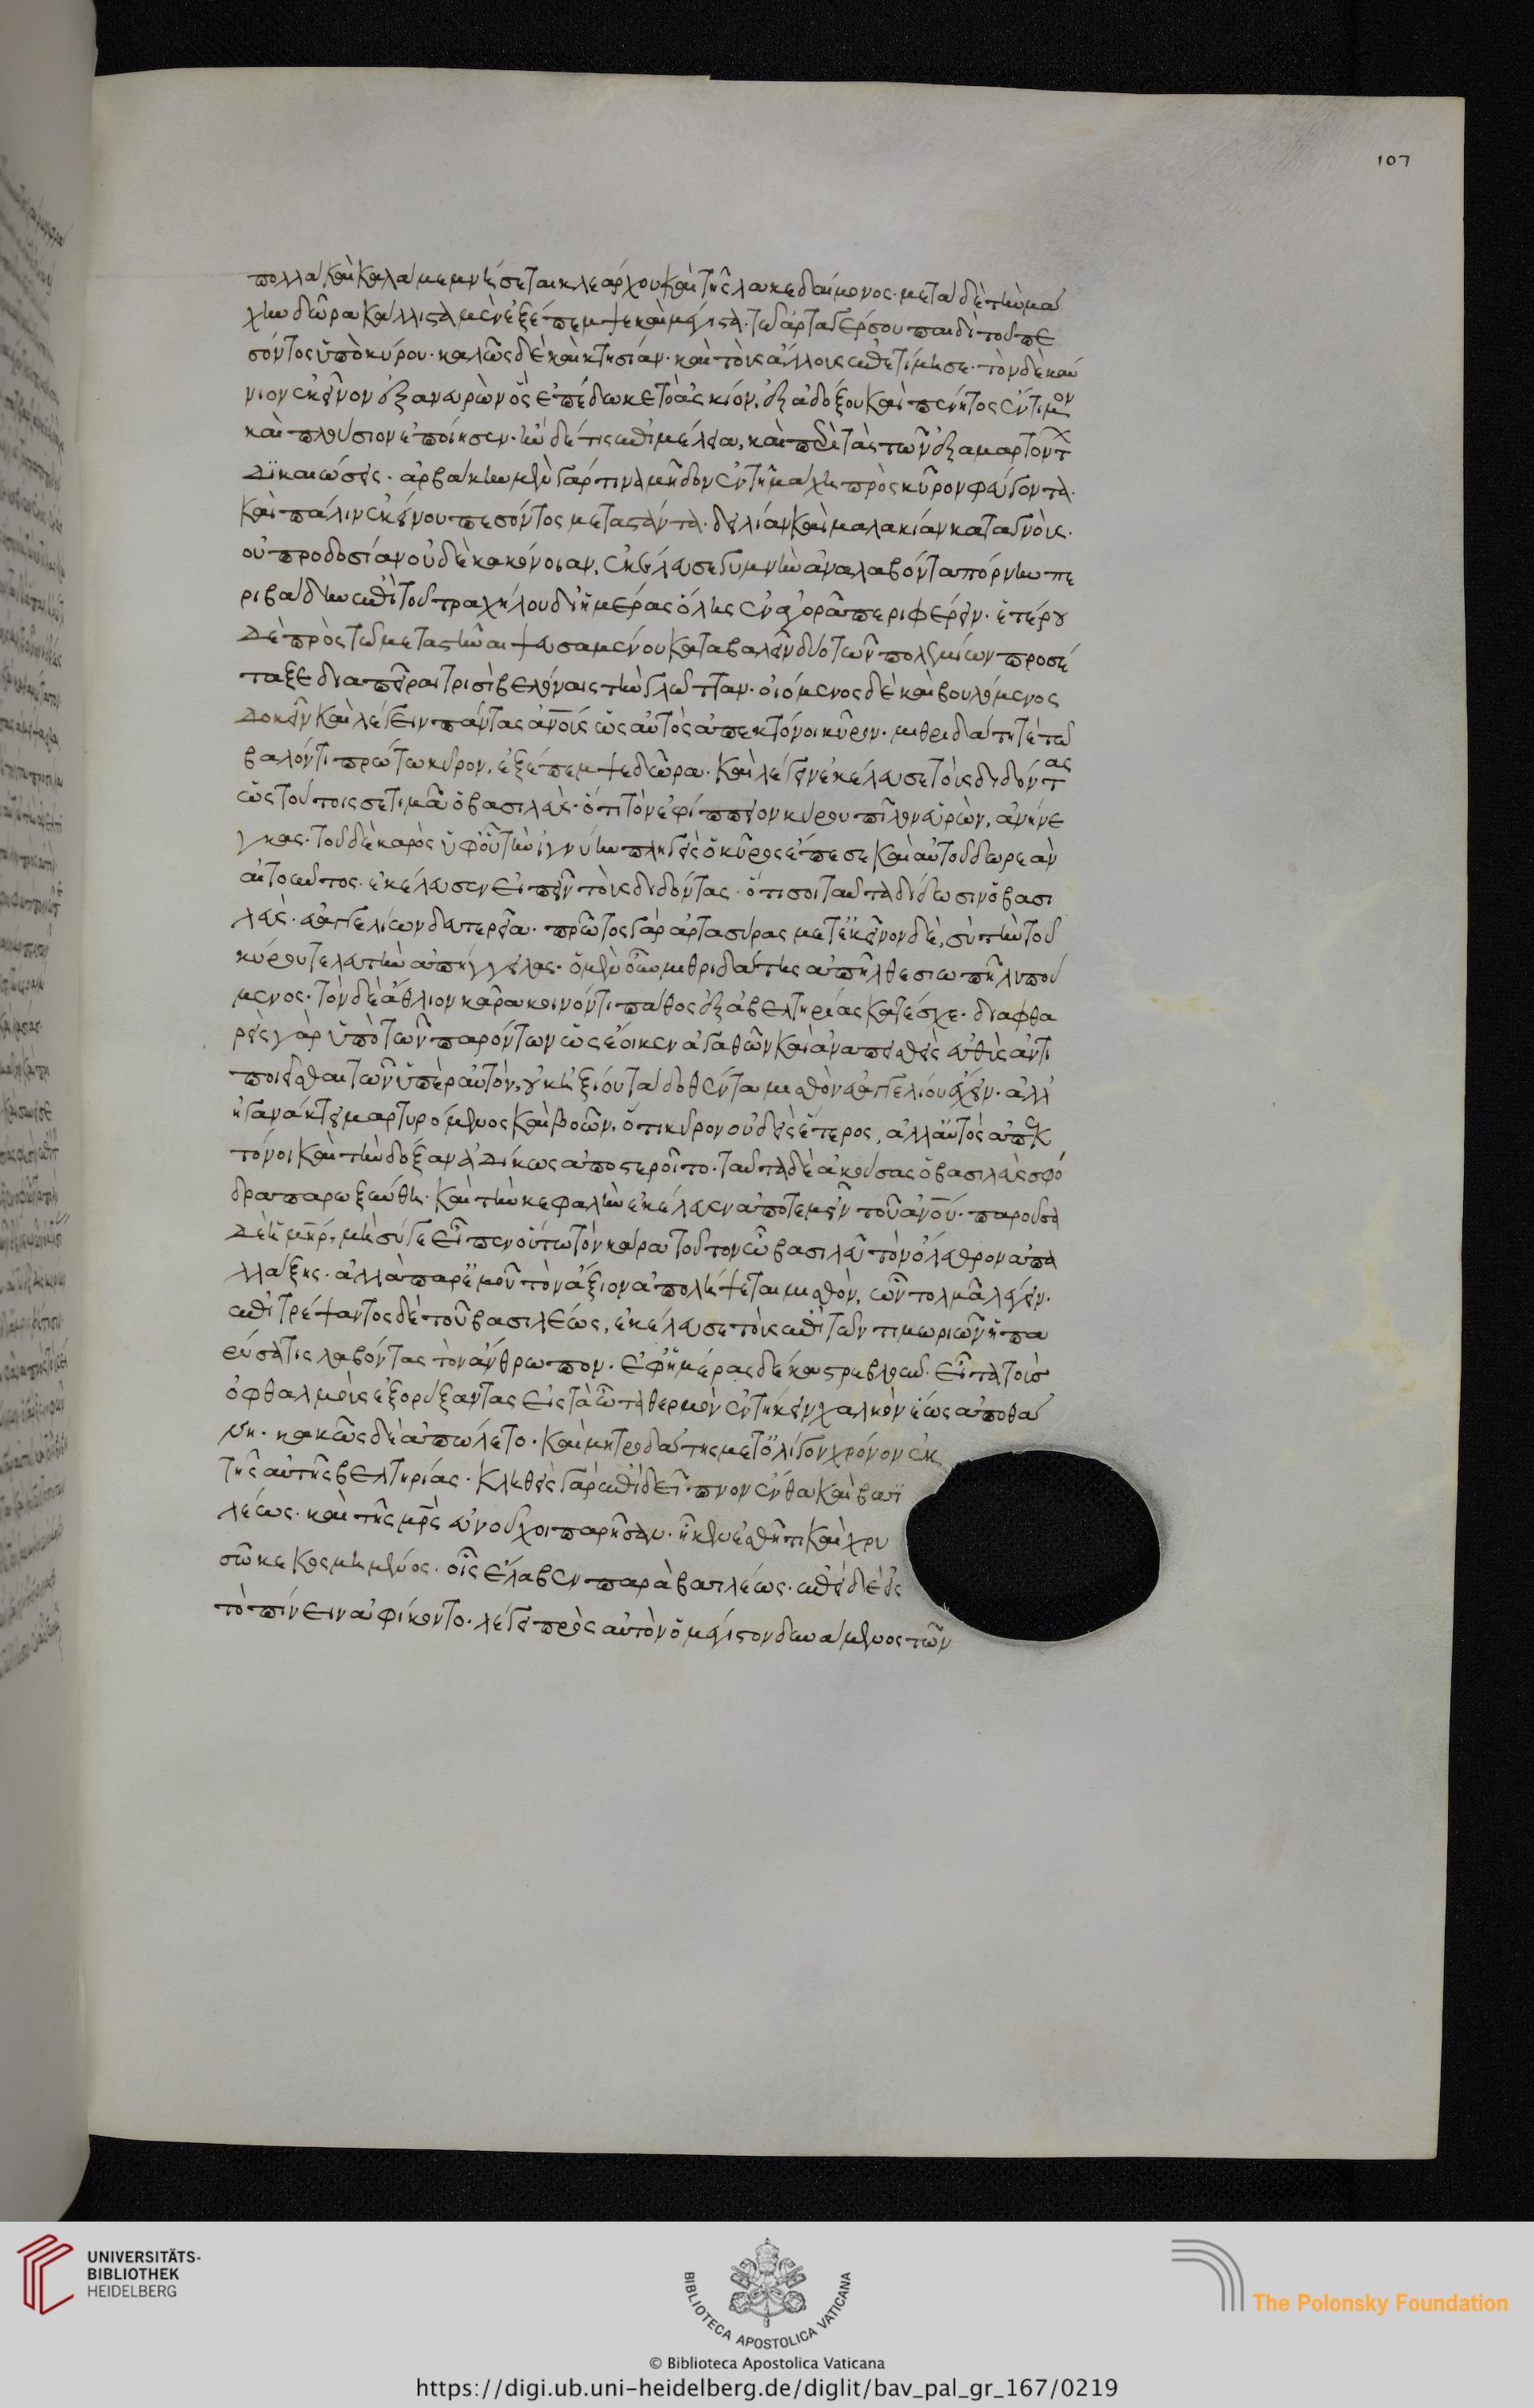 107
πολλὰ καὶ καλὰ μεμνήσεται κλεάρχου καὶ τῆς λακεδαίμονος· μετὰ δὲ τὴν μά
χην δῶρα κάλλιστα μὲν ἐξέπεμψε καὶ μέγιστα· τῶ ἀρταγέρσου παιδὶ τοῦ πε
σόντος ὑπὸ κύρου· καλῶς δὲ καὶ κτησίαν· καὶ τοὺς ἄλλους ἐπετίμησε· τὸν δὲ καύ
νιον ἐκεῖνον ἐξανευρὼν ὃς ἐπέδωκε τὸ ἀσκίον, ἐξ ἀδόξου καὶ πένητος ἔντιμον
καὶ πλούσιον ἐποίησεν· ἦν δέ τις ἐπιμέλεια, καὶ περὶ τὰς τῶν ἐξαμαρτόντ
δικαιώσεις· ἀρβάκην μὲν γάρ τινα μῆδον ἐν τῆ μάχη πρὸς κῦρον φυγόντα·
καὶ πάλιν ἐκείνου πεσόντος μεταστάντα· δειλίαν καὶ μαλακίαν καταγνοὺς·
οὐ προδοσίαν οὐδὲ κακόνοιαν, ἐκέλευσε γυμνὴν ἀναλαβόντα πόρνην πε
ριβάδην ἐπὶ τοῦ τραχήλου δι' ἡμέρας ὅλης ἐν ἀγορᾶ περιφέρειν· ἑτέρου
δὲ πρὸς τῶ μεταστῆναι ψευσαμένου καταβαλεῖν δύο τῶν πολεμίων προσέ
ταξε διαπεῖραι τρισὶ βελόναις τὴν γλῶτταν· οἰόμενος δὲ καὶ βουλόμενος
δοκεῖν καὶ λέγειν πάντας ἀνοὺς ὡς αὐτὸς ἀπεκτόνοι κῦρον· μιθριδάτη τέ τῶ
βαλόντι πρώτω κῦρον, ἐξέπεμψε δῶρα· καὶ λέγειν ἐκέλευσε τοὺς διδόντας
ὡς τούτοις σε τιμᾶ ὁ βασιλεὺς· ὅτι τὸν ἐφίππειον κύρου πῖλον εὑρὼν, ἀνήνε
γκας· τοῦ δὲ καρὸς ὑφ' οὗ τὴν ἰγνύην πληγεὶς ὁ κῦρος ἔπεσε καὶ αὐτοῦ δωρεὰν
αἰτοῦντος· ἐκέλευσεν εἰπεῖν τοὺς διδόντας· ὅτι σοι ταῦτα δίδωσιν ὁ βασι
λεὺς· εὐαγγελίων δευτερεῖα· πρῶτος γὰρ ἀρτασύρας μετ' ἐκεῖνον δὲ, σὺ τὴν τοῦ
κύρου τελευτὴν ἀπήγγειλας· ὁ μὲν οὖν μιθριδάτης ἀπῆλθε σιωπῆ λυπού
μενος· τὸν δὲ ἄθλιον κᾶρα κοινόν τι πάθος ἐξ ἀβελτηρίας κατέσχε· διαφθα
ρεὶς γὰρ ὑπὸ τῶν παρόντων ὡς ἔοικεν ἀγαθῶν καὶ ἀναπεισθεὶς εὐθὺς ἀντι
ποιεῖσθαι τῶν ὑπὲρ αὐτὸν, οὐκ ἠξίου τὰ δοθέντα μισθὸν εὐαγγελίου ἔχειν· ἀλλ'
ἠγανάκτει μαρτυρόμενος καὶ βοῶν, ὅτι κῦρον οὐδεὶς ἕτερος, ἀλλ' αὐτὸς ἀπεκ
τόνοι καὶ τὴν δόξαν ἀδίκως ἀποστεροῖτο· ταῦτα δὲ ἀκούσας ὁ βασιλεὺς σφό
δρα παρωξύνθη· καὶ τὴν κεφαλὴν ἐκέλευσεν ἀποτεμεῖν τοῦ ἀνοῦ· παροῦσα
δὲ ἡ μηρ, μὴ σύ γε εἶπεν οὕτω τὸν κᾶρα τοῦτον ὦ βασιλεῦ τὸν ὄλεθρον ἀπα
λλάξης· ἀλλὰ παρ' ἐμοῦ τὸν ἄξιον ἀπολήψεται μισθὸν, ὧν τολμᾶ λέγειν·
ἐπιτρέψαντος δὲ τοῦ βασιλέως, ἐκέλευσε τοὺς ἐπὶ τῶν τιμωριῶν ἡ πα
ρύσατις λαβόντας τὸν ἄνθρωπον· ἐφ' ἡμέρας δέκα στρεβλοῦν· εἶτα τοὺς
ὀφθαλμοὺς ἐξορύξαντας εἰς τὰ ὦτα θερμὸν ἐντήκειν χαλκὸν ἕως ἀποθά
νη· κακῶς δὲ ἀπώλετο· καὶ μιτριδάτης μετ' ὀλίγον χρόνον ἐκ
τῆς αὐτῆς βελτηρίας· κληθεὶς γὰρ ἐπὶ δεῖπνον ἔνθα καὶ βασι
λέως· καὶ τῆς μρς εὐνοῦχοι παρῆσαν· ἧκεν ἐσθῆτι καὶ χρυ
σῶ κεκοσμημένος· οἷς ἔλαβεν παρὰ βασιλέως· ἐπεὶ δὲ εἰς
τὸ πίνειν ἀφίκοντο· λέγει πρὸς αὐτὸν ὁ μέγιστον δυνάμενος τῶν
UNIVERSITÄTS-
BIBLIOTHEK
HEIDELBERG
BIBLIOTECA APOSTOLICA VATICANA
The Polonsky Foundation
© Biblioteca Apostolica Vaticana
https://digi.ub.uni-heidelberg.de/diglit/bav_pal_gr_167/0219